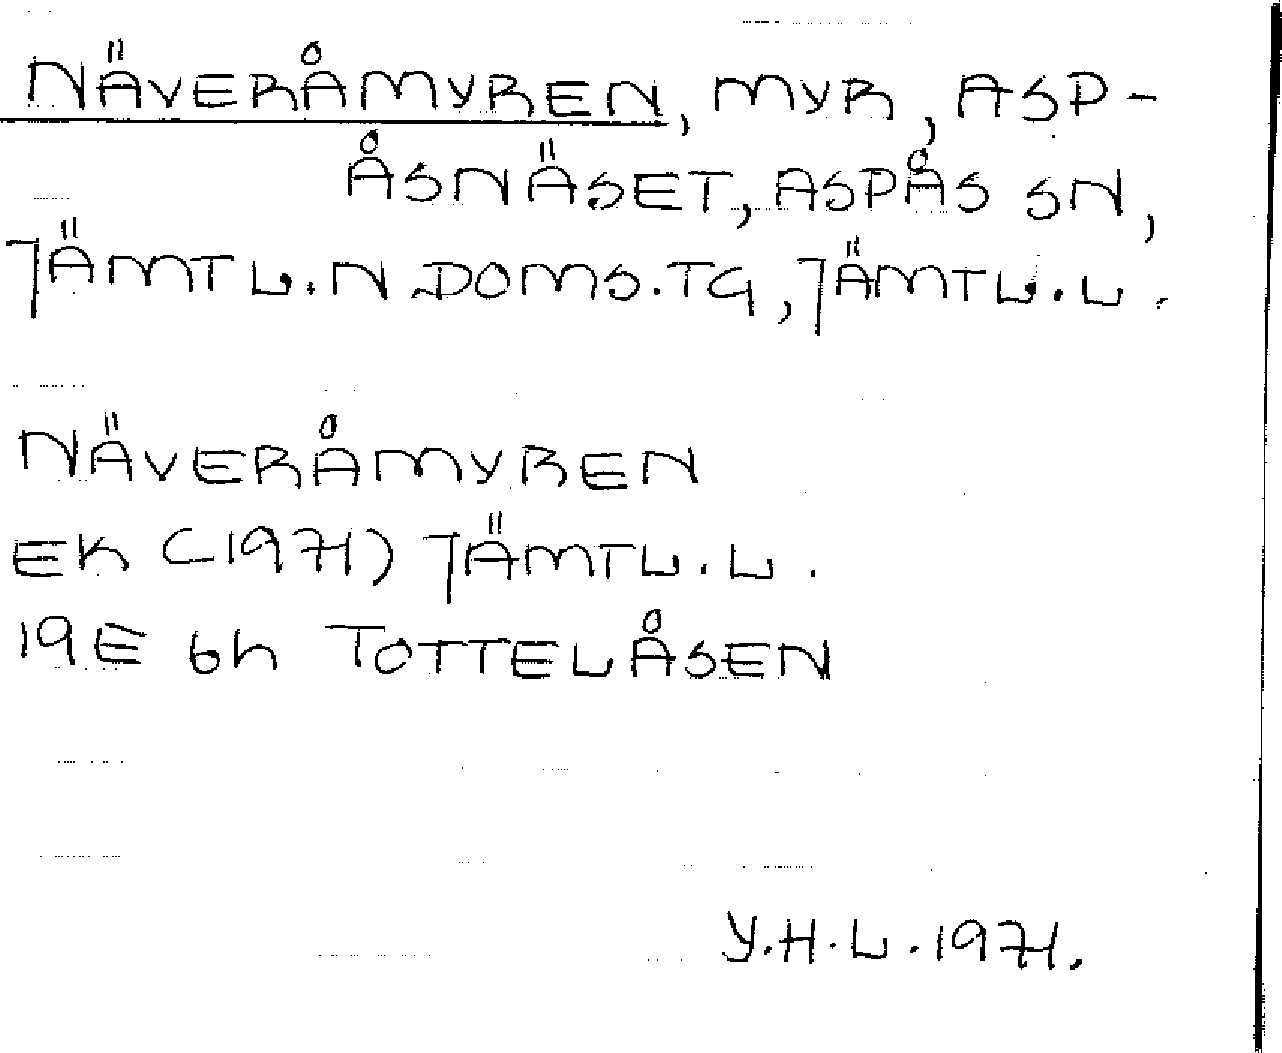 NÄVERÅMYREN, MYR, ASP-
ÅSNÄSET, ASPÅS SN,
JÄMTL.N DOMS.TG, JÄMTL.L.
NÄVERÅMYREN
EK (1971) JÄMTL.L.
19E 6h TOTTELÅSEN
Y.H.L.1971.